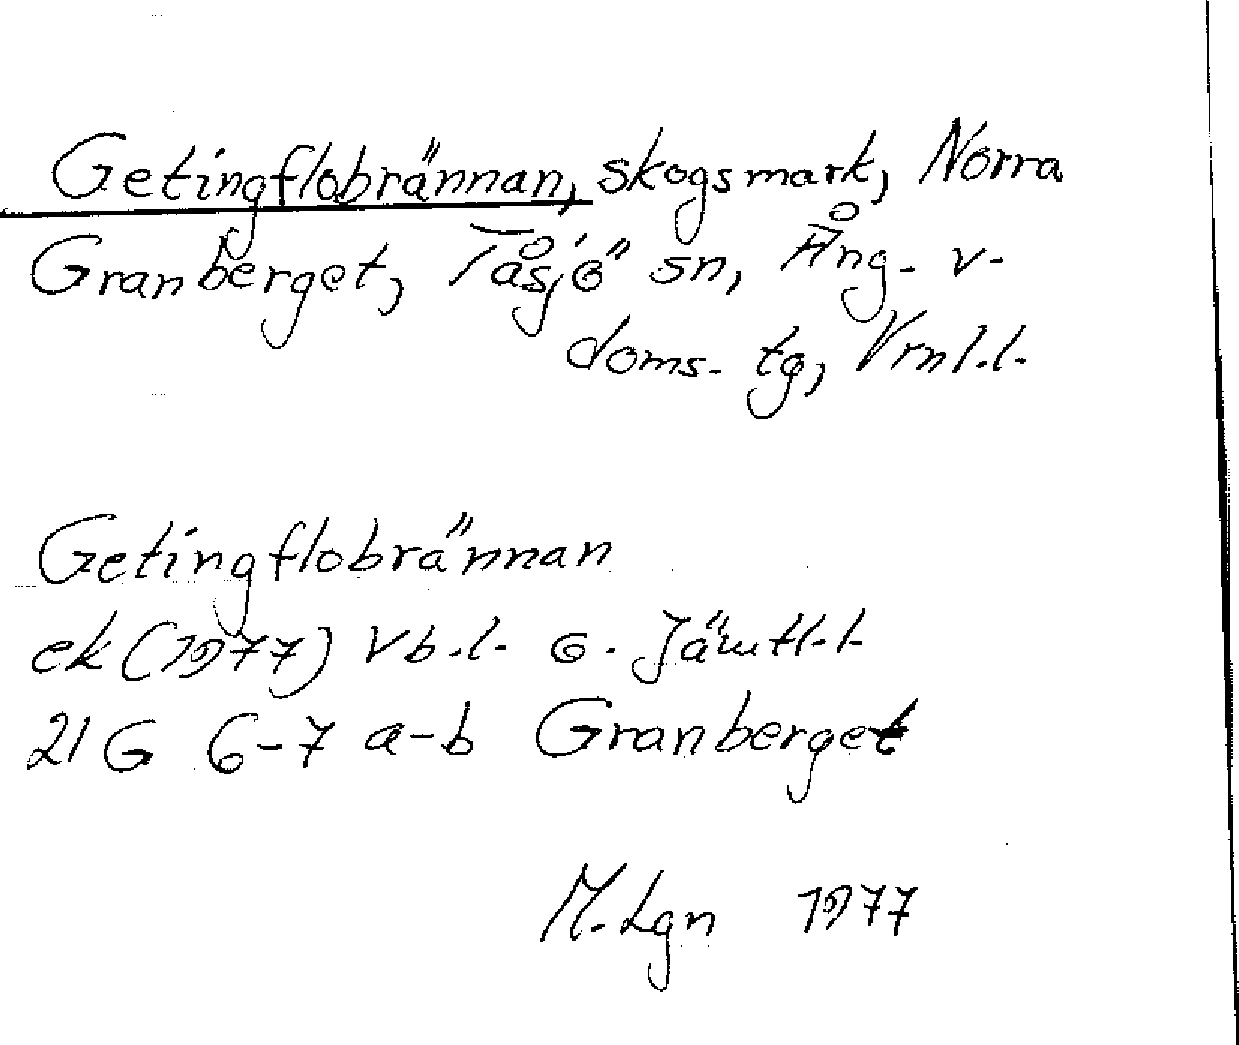 Getingflobrännan, skogsmark, Norra
Granberget, Tåsjö sn, Ång. v.
doms. tg, Vrnl.l.
Getingflobrännan
ek (1977) Vb.l. o. Jämtl.l.
21 G 6-7 a-b Granberget
M. Lgn 1977